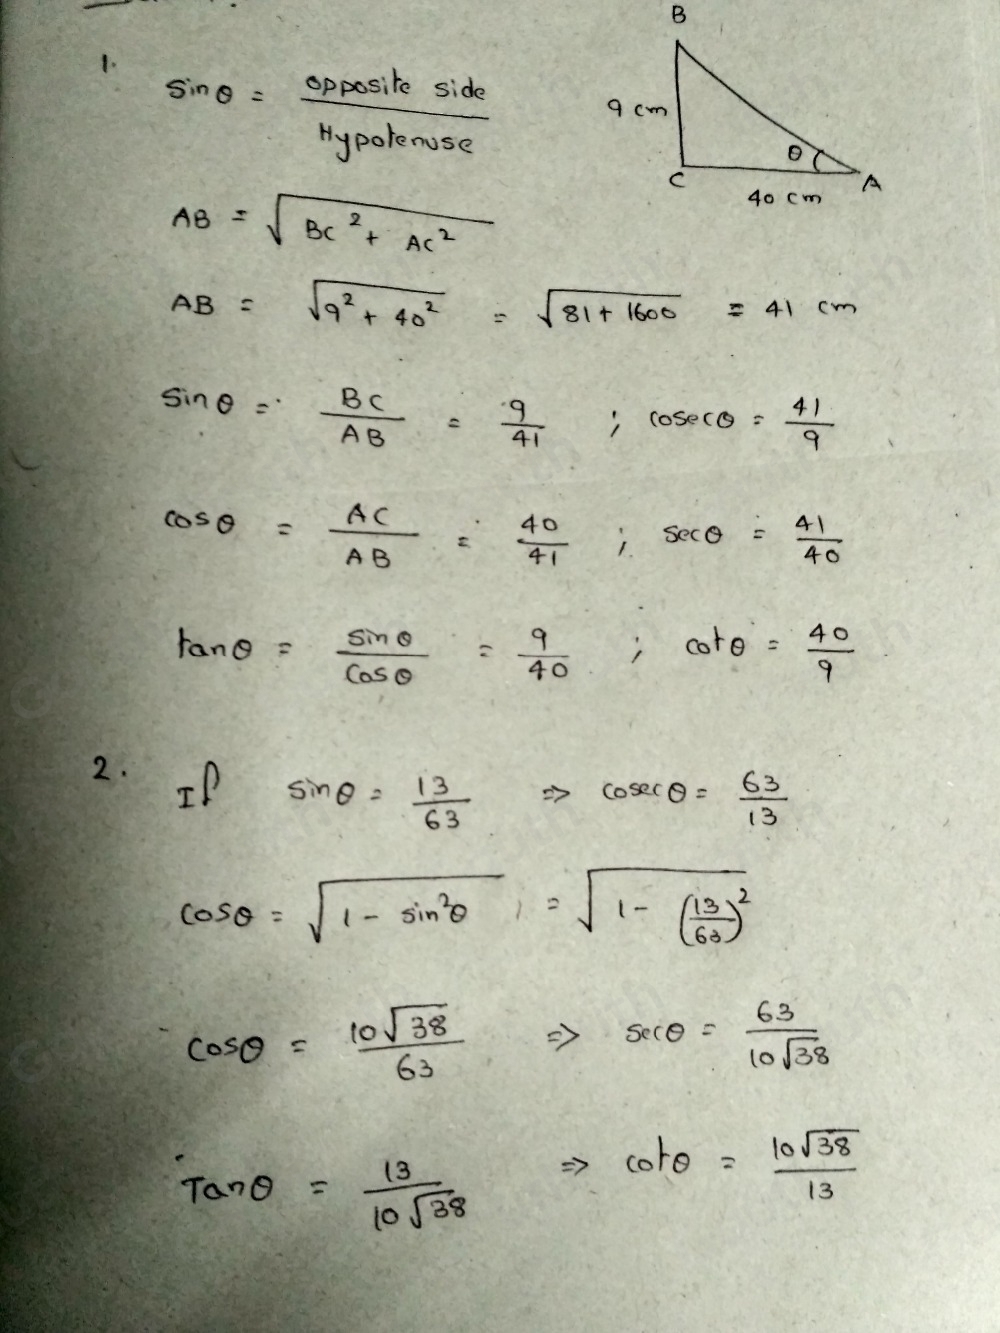 1.
sinθ = opposite side / Hypotenuse
B
9 cm
θ
C
A
40 cm
AB = √(BC² + AC²)
AB = √(9² + 40²) = √(81 + 1600) = 41 cm
sinθ = BC/AB = 9/41 ; cosecθ = 41/9
cosθ = AC/AB = 40/41 ; secθ = 41/40
tanθ = sinθ/cosθ = 9/40 ; cotθ = 40/9
2. If sinθ = 13/63 ⇒ cosecθ = 63/13
cosθ = √(1 - sin²θ) = √(1 - (13/63)²)
cosθ = 10√38/63 ⇒ secθ = 63/10√38
Tanθ = 13/10√38 ⇒ cotθ = 10√38/13